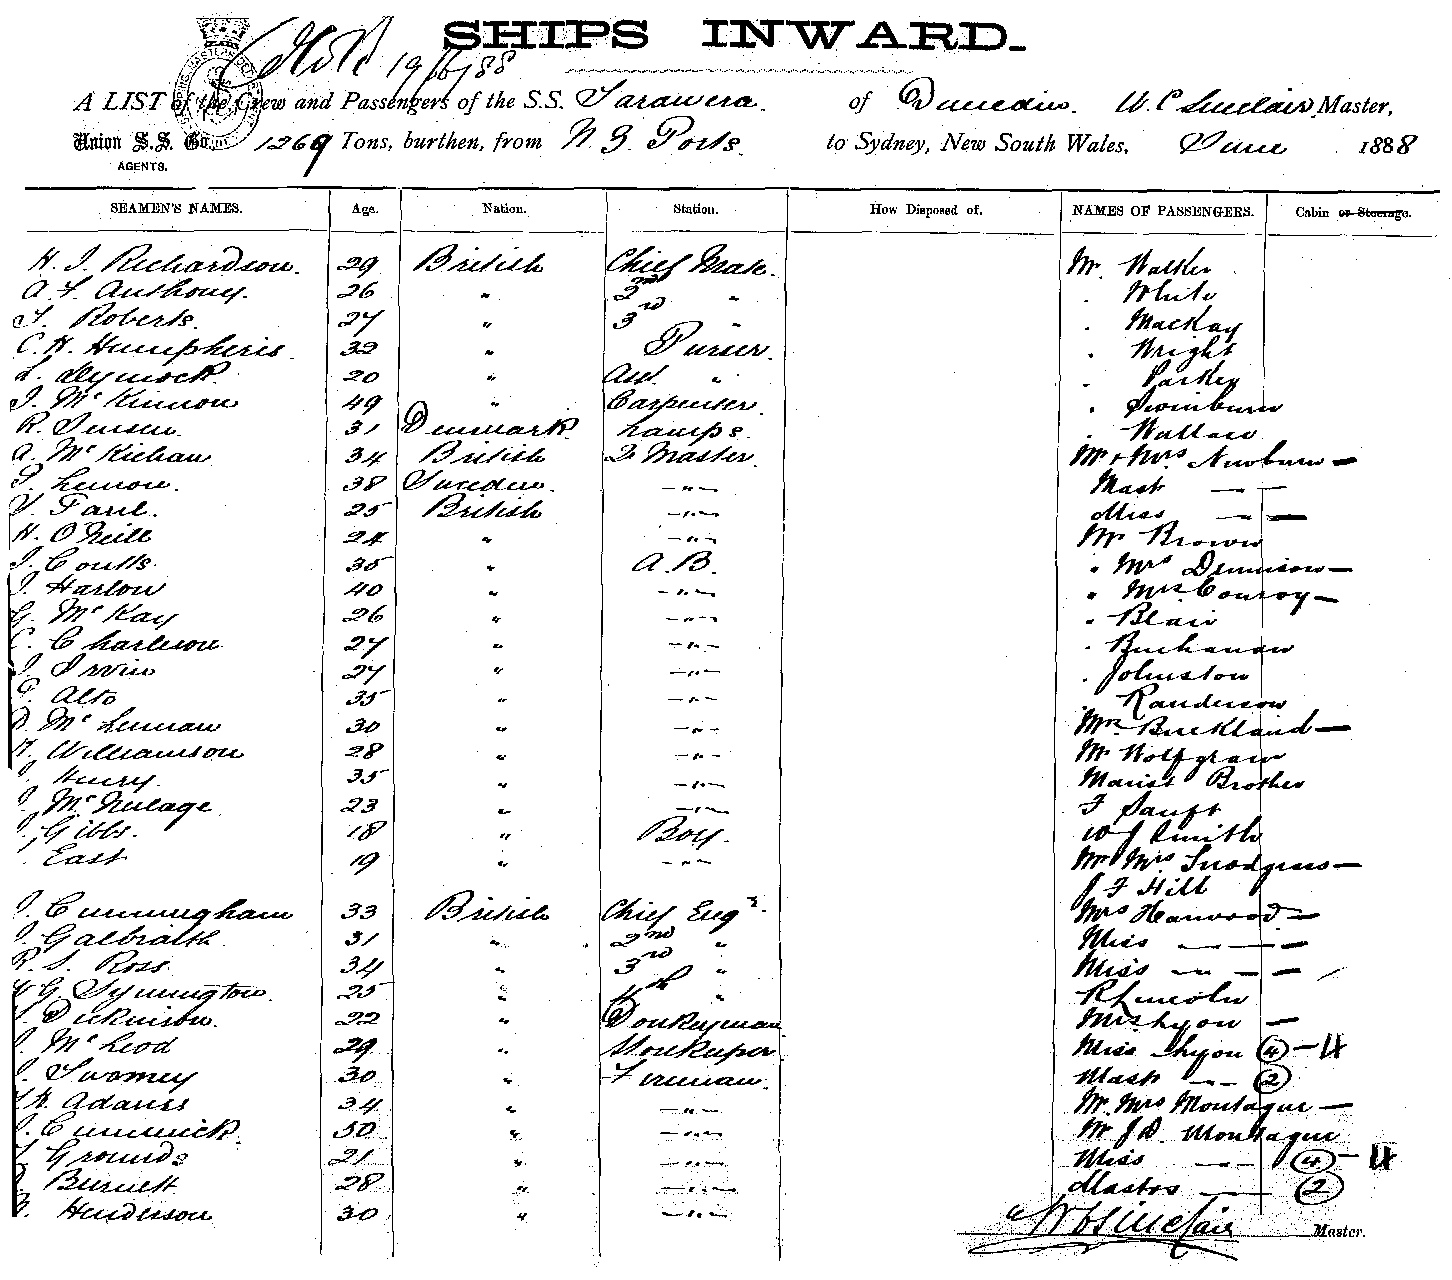 SHIPS INWARD.
19/6/88
A LIST of the Crew and Passengers of the S.S. Tarawera. of Dunedin. W. C. Sinclair, Master,
Union S.S. Co. 1269 Tons, burthen, from N. Z Ports. to Sydney, New South Wales, June 1888
AGENTS.
SEAMEN'S NAMES. Age. Nation. Station. How Disposed of. NAMES OF PASSENGERS. Cabin or Steerage.
H. J. Richardson. 29 British Chief Mate. Mr. Walker
A. F. Anthony. 26 " 2nd " " White
T. Roberts. 27 " 3rd " " Mackay
C. H. Humpheris. 32 " Purser. " Wright
L. Dymock. 20 " Asst. " "
J. McKinnon 49 " Carpenter. " Swinburn
R. Jensen. 31 Denmark. Lamps. " Wallace
A. McKichan 34 British Q. Master. Mr & Mrs Newburn —
P. Lemon. 38 Sweden. —"— Mast —"—
Paul. 25 British —"— Miss —"— —
H. O'Neill 24 " —"— Mr Brown
J. Coutts. 35 " A.B. " Mrs Dennison —
J. Harlow 40 " —"— " Mrs Conroy —
G. McKay 26 " —"— " Blair
C. Charleson 27 " —"— " Buchanan
J. Irvin 27 " —"— " Johnston
P. Alto 35 " —"— Randerson
D. McLennan 30 " —"— Mrs Buckland —
Williamson 28 " —"— Mr Wolfgram
Henry. 35 " —"— Marist Brother
J. McNeilage 23 " —"— F Sanft
J. Gibbs. 18 " Boy. W J Smith
East 19 " —"— Mr Mrs Snodgrass —
J F Hill
J. Cunningham 33 British Chief Engr. Mrs Harwood —
J. Galbraith. 31 " 2nd " Miss —"— —
R. S. Ross 34 " 3rd " Miss —"— —
W G. Symington. 25 " 4th " R Lincoln
Dickinson. 22 " Donkeyman Mrs Lyon —
J. McLeod 29 " Storekeeper Miss Lyon 4 —
J. Twomey 30 " Fireman. Mast —"— 2
Adams 34 " —"— Mr. Mrs Montague —
J. Cummick. 50 " —"— Mr J D. Montague
Grounds 21 " —"— Miss —"— 4 —
Burnett 28 " —"— Masters — 2
Henderson 30 " —"—
W C Sinclair Master.